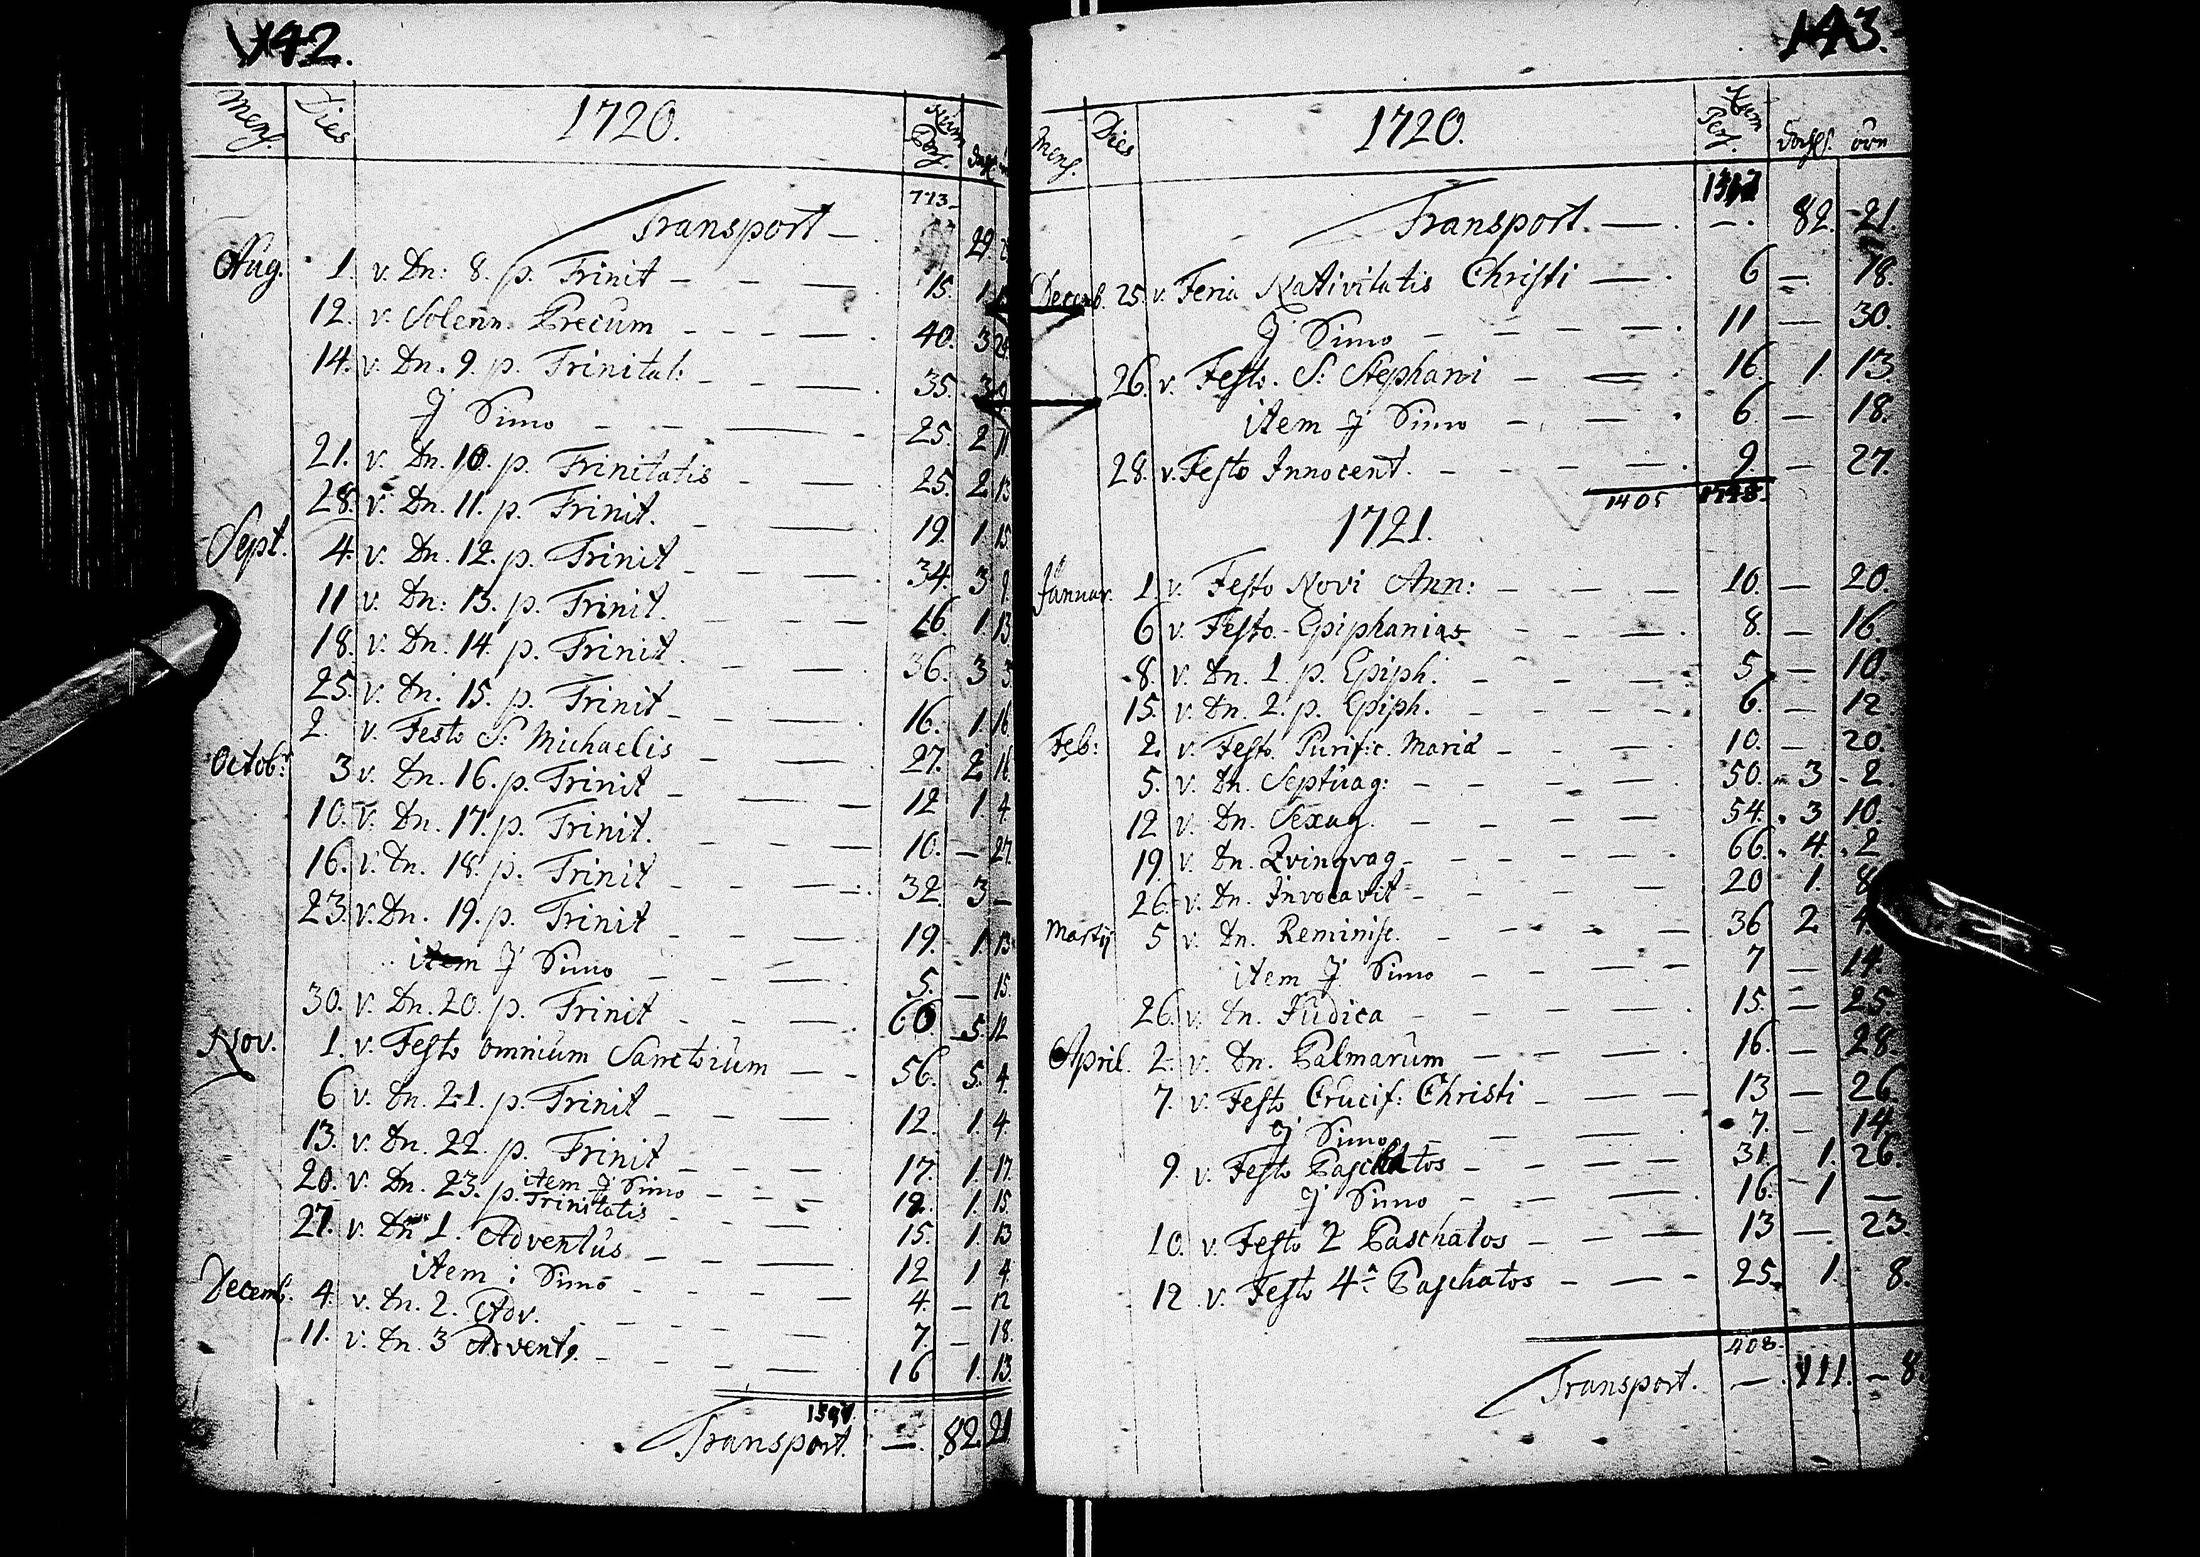 142.
Mens. Dies 1720. Num Pers.
773.
Transport — . 29
Aug. 1. v. Dn: 8. p. Trinit — 15. 1
12. v. Solenn. Precum — 40. 3 29
14. v. Dn. 9. p. Trinitat: — 35. 3
J Simo — 25. 2 11
21. v. Dn. 10. p. Trinitatis — 25. 2 13
28. v. Dn. 11. p. Trinit. — 19. 1 15
Sept. 4. v. Dn. 12. p. Trinit — 34. 3 9
11 v. Dn: 13. p. Trinit. — 16. 1. 13
18. v. Dn. 14. p. Trinit. — 36. 3 3
25. v. Dn. 15. p. Trinit — 16. 1. 16
2. v. Festo S: Michaelis — 27. 2 16
Octob: 3 v. Dn. 16. p. Trinit — 12 1. 4.
10. v. Dn. 17. p. Trinit. — 10. — 27.
16. v. Dn. 18. p. Trinit — 32. 3 —
23. v. Dn. 19. p. Trinit — 19. 1. 13
item J Simo — 5. — 15.
30. v. Dn. 20. p. Trinit — 60. 5. 12
Nov. 1. v. Festo omnium Sanctorium — 56. 5. 4.
6 v. Dn. 21. p. Trinit — 12. 1. 4
13. v. Dn. 22. p. Trinit — 17. 1. 17.
item J Simo — 12. 1. 15.
20. v. Dn. 23. p. Trinitatis — 15. 1. 13
27. v. Dn 1. Adventus — 12 1 4.
item i Simo — 4. — 12
Decemb. 4. v. Dn. 2. Adv. — 7. — 18.
11. v. Dn. 3 Advent. — 16 1. 13.
Transport. — . 82. 21
143.
Mens. Dies 1720. Num Pers. öre
Transport. — . — . 82. 21.
Decemb. 25. v. Feria Nativitatis Christi — . 6 — 18.
J Simo — . 11 — 30.
26. v. Festo. S: Stephani — . 16. 1. 13.
item J Simo — . 6. — 18.
28. v. Festo Innocent. — . 9. — 27.
1405
1721.
Januar. 1. v. Festo Novi Ann: — 10. — 20.
6 v. Festo Epiphanias — . 8. — 16.
8. v. Dn. 1. p. Epiph: — 5. — 10.
15. v. Dn. 2. p. Epiph. — . 6. — 12
Feb: 2. v. Festo Purific. Mariæ — . 10. — 20.
5. v. Dn. Septuag: — 50. 3 - 2.
12 v. Dn. Sexag. — 54. 3 10.
19. v. Dn. Qvinqvag — 66. 4. 2
26. v. Dn. Invocavit — 20 1. 8
Martij 5 v. Dn. Reminisc. — . 36 2
item J Simo — 7 — 14.
26. v. Dn. Judica — . 15. — 25
April. 2. v. Dn. Palmarum — . 16. — 28.
7. v. Festo Crucif: Christi — 13 — 26.
J Simo — . 7. — 14
9. v. Festo Paschatos — 31. 1. 26.
J Simo — . 16. 1 —
10. v. Festo 2 Paschatos — 13 — 23.
12 v. Festo 4ª Paschatos — 25. 1. 8.
408.
Transport. — . 111. — 8.